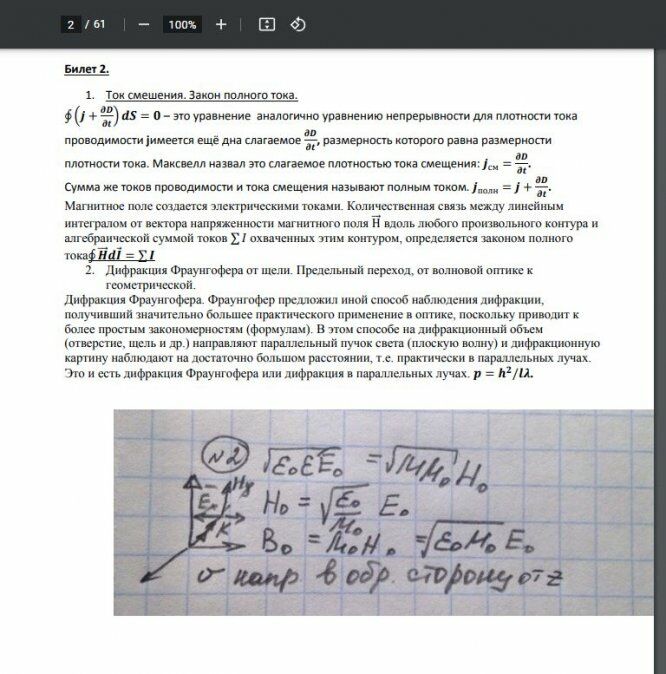 2 / 61 — 100% +
Билет 2.
1. Ток смешения. Закон полного тока.
∮(j + ∂D/∂t) dS = 0 – это уравнение аналогично уравнению непрерывности для плотности тока
проводимости jимеется ещё дна слагаемое ∂D/∂t, размерность которого равна размерности
плотности тока. Максвелл назвал это слагаемое плотностью тока смещения: jсм = ∂D/∂t.
Сумма же токов проводимости и тока смещения называют полным током. jполн = j + ∂D/∂t.
Магнитное поле создается электрическими токами. Количественная связь между линейным
интегралом от вектора напряженности магнитного поля H⃗ вдоль любого произвольного контура и
алгебраической суммой токов ∑I охваченных этим контуром, определяется законом полного
тока∮H⃗dl⃗ = ∑I
2. Дифракция Фраунгофера от щели. Предельный переход, от волновой оптики к
геометрической.
Дифракция Фраунгофера. Фраунгофер предложил иной способ наблюдения дифракции,
получивший значительно большее практического применение в оптике, поскольку приводит к
более простым закономерностям (формулам). В этом способе на дифракционный объем
(отверстие, щель и др.) направляют параллельный пучок света (плоскую волну) и дифракционную
картину наблюдают на достаточно большом расстоянии, т.е. практически в параллельных лучах.
Это и есть дифракция Фраунгофера или дифракция в параллельных лучах. p = h²/lλ.
№2 √ε₀εE₀ = √μμ₀H₀
E Hy K
H₀ = √(ε₀/μ₀) E₀
B₀ = μ₀H₀ = √ε₀μ₀E₀
υ напр. в обр. сторону от z